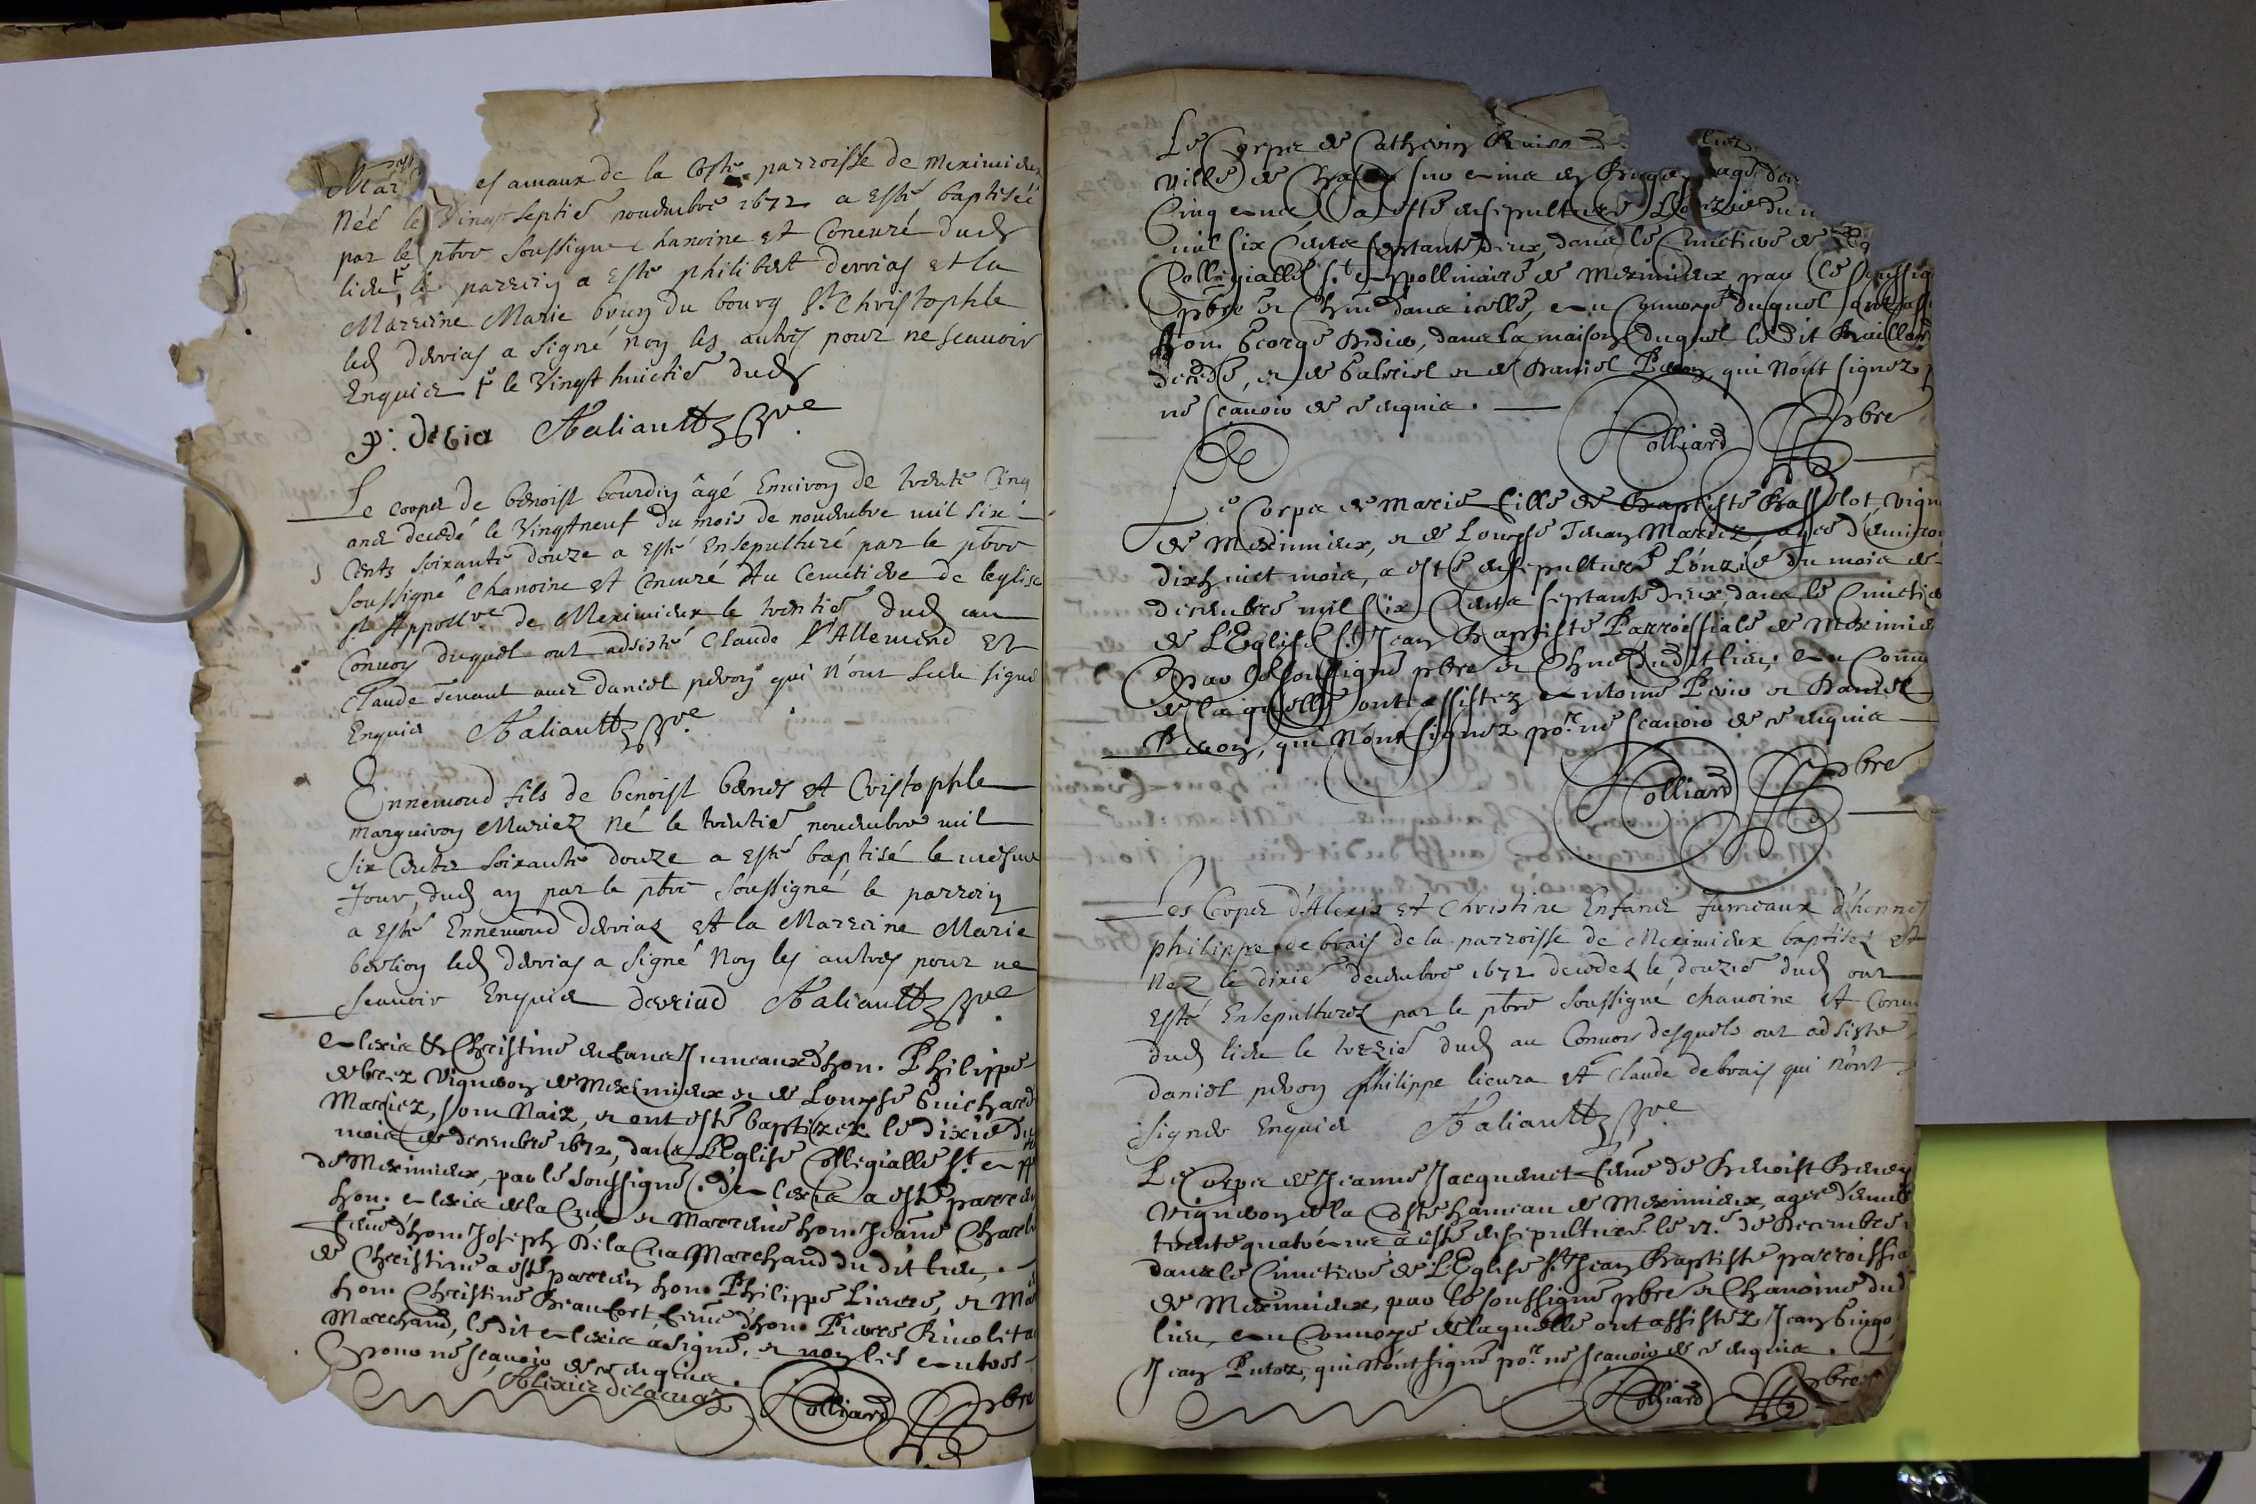 es amaux de la Coste parroisse de meximieux
Néé le Vingt septie novembre 1672 a esté baptiséé
par le pbre soussigne chanoine et Concuré dud
lieu, le parrein a esté philibert derrias et la
Marreine Marie brun du bourg St. Christophle
led derrias a signé non les autres pour ne scauoir
Enquis le Vingt huictie dud
Le corps de benoist bourdin âgé Enuiron de trente Cinq
ans decedé le Vingtneuf du mois de nouembre mil six
Cents soixante douze a esté Ensepulturé par le pbre
soussigné chanoine et Concuré Au Cemetiere de leglise
st. Appollre de Meximieux le trentie dud au
Conuoy duquel ont adsisté Claude l'Allemend Et
Claude auec daniel peron qui n'ont sceu signé
Enquis
Ennemond fils de benoist et Cristophle
Mariez Né le trentie nouembre mil
six Cents soixante douze a esté baptisé le mesme
Jour, dud an par le pbre soussigné le parrein
a esté Ennemond derrias et la Marreine Marie
berlion led derrias a signé Non les autres pour ne
scauoir Enquis derriad
Alexis & Christine enfans Jumeaux d'hon. Philippe
debrez Vigneron de Meximieux et de Lounse Guichard
Mariez, sont Naiz, et ont esté baptizez le dixie du
mois de decembre 1672, dans L'Eglise Collegialle St. App
de Meximieux, par le soussigné. d'Alexis a esté parrein
hon. Alexis de la Cua et Marreine hon. Jeanne Charl
feme d'hon. Joseph Dela Cua Marchand du dit lieu,
de Christine a esté parrein hon. Philippe Lieure, et Ma
hon. Christine Beaufort, feme d'hon. Pierre Rinolet
Marchand, le dit Alexis a signé, et non les autres
pour ne scauoir de ce enquis.
Alixis delacuaz Polliard pbre
Le Corps de Cathrin
Ville de ans agé d'en
Cinq ans a esté ensepulturé L'onzie du
mil six Cents septante deux, dans le Cimetiere de
Collegialle St. Appollinaire de Meximieux, par le soussig
pbre et Chne dans icelle, au Conuoy duquel sont ass
hon. George Didier, dans la maison duquel le dit
decedé, et de Gabriel et de Daniel Peron, qui N'ont signez p
ne scauoir de ce enquis.
Polliard pbre
Le Corps de Marie fille de Baptiste Basselot, vign
de Meximieux, et de Lounse Mariez, agée d'enuiron
dixhuict mois, a esté ensepulturé L'onzie du mois de
decembre mil six Cents septante deux, dans le Cimetie
de L'Eglise St. Jean Baptiste Parroissiale de Meximie
par le soussigné pbre et Chne dudit lieu, au Conu
de laquelle ont assistez Antoine Perin et Daniel
Peron, qui N'ont signez por. ne scauoir de ce enquis
Polliard pbre
Les Corps d'Alexis et Christine Enfans Jumeaux d'honnes
philippe de brais de la parroisse de Meximieux baptisez et
Nez le dixie decembre 1672 decedez le douzie dud ont
esté Ensepulturez par le pbre soussigné chanoine et Concu
dud lieu le trezie dud au Conuoy desquels ont adsisté
daniel peron philippe lieura et Claude debrais qui n'ont
signés Enquis
Le Corps de Jeanne Jacquemet feme de Benoist
Vigneron de la Coste hameau de Meximieux, agée d'enui
trentequatre ans a esté ensepulturée le 17e. de Decembre
dans le Cimetiere de L'Eglise St. Jean Baptiste parroissia
de Meximieux, par le soussigné pbre et Chanoine dud
lieu, au Conuoy de laquelle ont assistez Jean
Jean Putoz, qui N'ont signé por. ne scauoir de ce enquis.
Polliard pbre